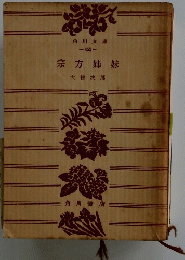 角川文庫
宗方姉妹
大佛次郎
角川書店